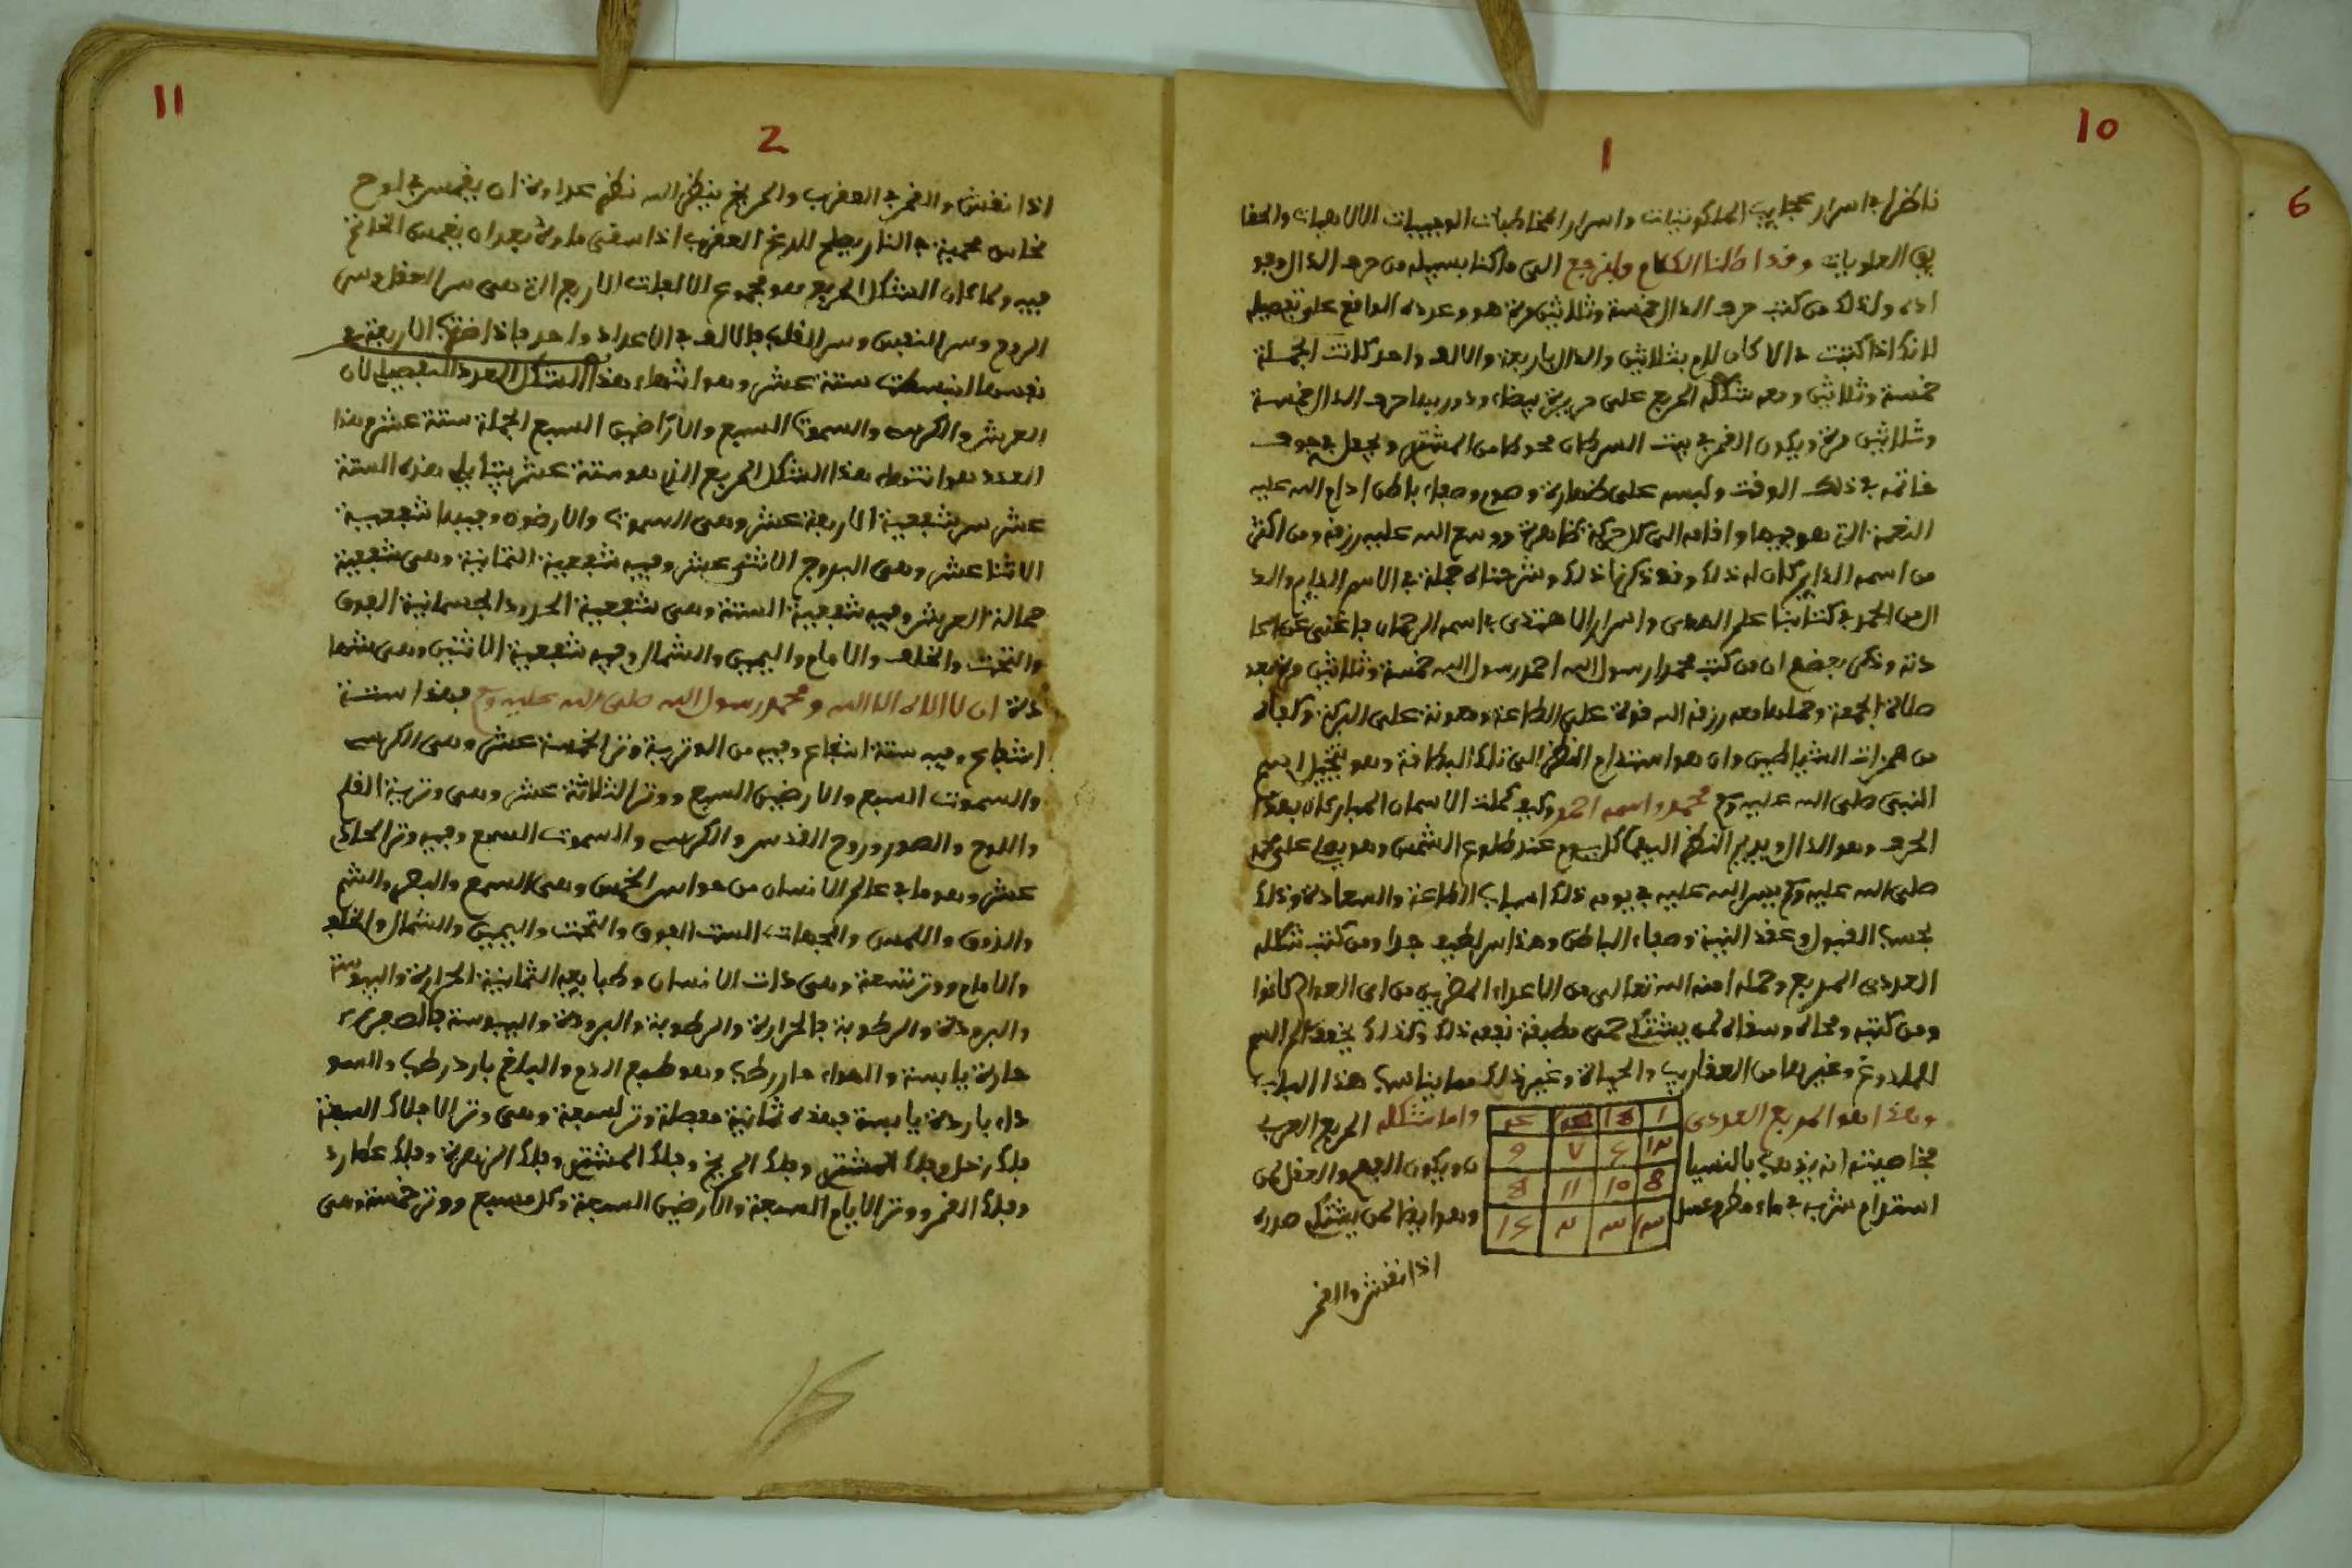 10
1
ناظرا في اسرار عجايب الملكوتيات واسرار المخاطبات الوحييات الالاهيات والحقا
يق العلويات وقد اطلنا الكلام ولنرجع الى ما كنا بسبيله من حرف الدال وجو
اده ولذلك من كتب حرف الدال خمسة وثلاثين مرة هو وعدده الواقع على تفصيله
لانك اذا كتبت دالا كان لام بثلاثين والدال باربعة والالف واحد كانت الجملة
خمسة وثلاثين ومعه شكله المربع على حريرة بيضاء ودور بها حرف الدال خمسة
وثلاثين مرة ويكون القمر في بيت السرطان محوطا من المشتري ويجعل في جوف
خاتمه في ذلك الوقت ولبسه على طهارة وصوم وصفاء باطن ادام الله عليه
النعمة التي هو فيها واقامه الى كل حركة ظاهرة ووسع الله عليه رزقه ومن اكثر
من اسمه الدايم كان له ذلك وقد ذكرنا ذلك وشرحناه جملة في الاسم الدايم والد
ال من الحمد في كتابنا علم الهدى واسرار الاهتدى في اسمه الرحمان فاغنى عن اعا
دته وذكر بعضهم ان من كتب محمد رسول الله احمد رسول الله خمسة وثلاثين مرة بعد
صلاة الجمعة وحملها معه رزقه الله قوة على الطاعة ومعونة على البركة وكفاه
من همزات الشياطين وان هو استدام النظر الى تلك البطاقة وهو يتخيل اسم
النبي صلى الله عليه وسلم محمد واسمه احمد وكيف كملت الاسمان المباركان بهذا
الحرف وهو الدال ويديم النظر اليها كل يوم عند طلوع الشمس وهو يصلي على محمد
صلى الله عليه وسلم ييسر الله عليه في يومه ذلك اسباب الطاعة والسعادة وذلك
بحسب القبول وعقد النية وصفاء الباطن وهذا سر لطيف جدا ومن كتب شكله
العددي المربع وحمله امنه الله تعالى من الاعداء المضرين من اي العوالم كانوا
ومن كتبه ومحاه وسقاه لمن يشتكي حمى مطبقة نفعه ذلك وكذلك يخفف الم السم
للملدوغ وغيرها من العقارب والحياة وغير ذلك مما يناسب هذا الباب
وهذا هو المربع العددي
واما شكله المربع الحرفي
فخاصيته انه يذهب بالنسيا
ن ويكون الفهم والحفظ لمن
استدام شربه في ماء مطر وعسل
وهو ايضا لمن يشتكي صدره
اذا نقش والقمر
11
2
اذا نقش والقمر في العقرب والمريخ ينظر اليه نظر عداوة ان يغمس في لوح
نحاس محمية في النار يصلح للدغ العقرب اذا سقى ماؤه بعد ان يغمس الخاتم
فيه ولما كان الشكل المربع هو مجموع الالفات الاربع التي هي سر العقل وسر
الروح وسر النفس وسر القلب فالالف في الاعداد واحد فاذا ضربت الاربعة في
نفسها انبسطت ستة عشر وهو انتهاء هذا الشكل العدد التفصيلي لان
العرش والكرسي والسموات السبع والاراضين السبع الجملة ستة عشر وهذا
العدد هو انتهاء هذا الشكل المربع الذي هو ستة عشر يتقابل هذه الستة
عشر سر شفعية الاربعة عشر وهي السموات والارضون وفيها شفعية
الاثنا عشر وهي البروج الاثني عشر وفيه شفعية الثمانية وهي شفعية
حمالة العرش وفيه شفعية الستة وهي شفعية الحدود الجسمانية الفوق
والتحت والخلف والامام واليمين والشمال وفيه شفعية الاثنين وهي شها
دة ان لا اله الا الله و محمد رسول الله صلى الله عليه وسلم فهذا ستة
اشفاع وفيه ستة اشفاع وفيه من الوترية وتر الخمسة عشر وهي الكرسي
والسموات السبع والارضين السبع ووتر الثلاثة عشر وهي وترية القلم
واللوح والصور وروح القدس والكرسي والسموات السبع وفيه وتر الحادي
عشر وهو ما في عالم الانسان من حواس الخمس وهي السمع والبصر والشم
والذوق واللمس والجهات الست الفوق والتحت واليمين والشمال والخلف
والامام ووتر تسعة وهي ذات الانسان وطبايعه الثمانية الحرارة واليبوسة
والبرودة والرطوبة فالحرارة والرطوبة والبرودة واليبوسة فالصفراء
حارة يابسة والهواء حار رطب وهو طبع الدم والبلغم بارد رطب والسو
داء باردة يابسة فهذه ثمانية مفصلة وتر لسبعة وهي وتر الافلاك السبعة
فلك زحل وفلك المشتري وفلك المريخ وفلك الشمس وفلك الزهرة وفلك عطارد
وفلك القمر ووتر الايام السبعة والارضين السبعة وكل مسبع ووتر خمسة وهي
6